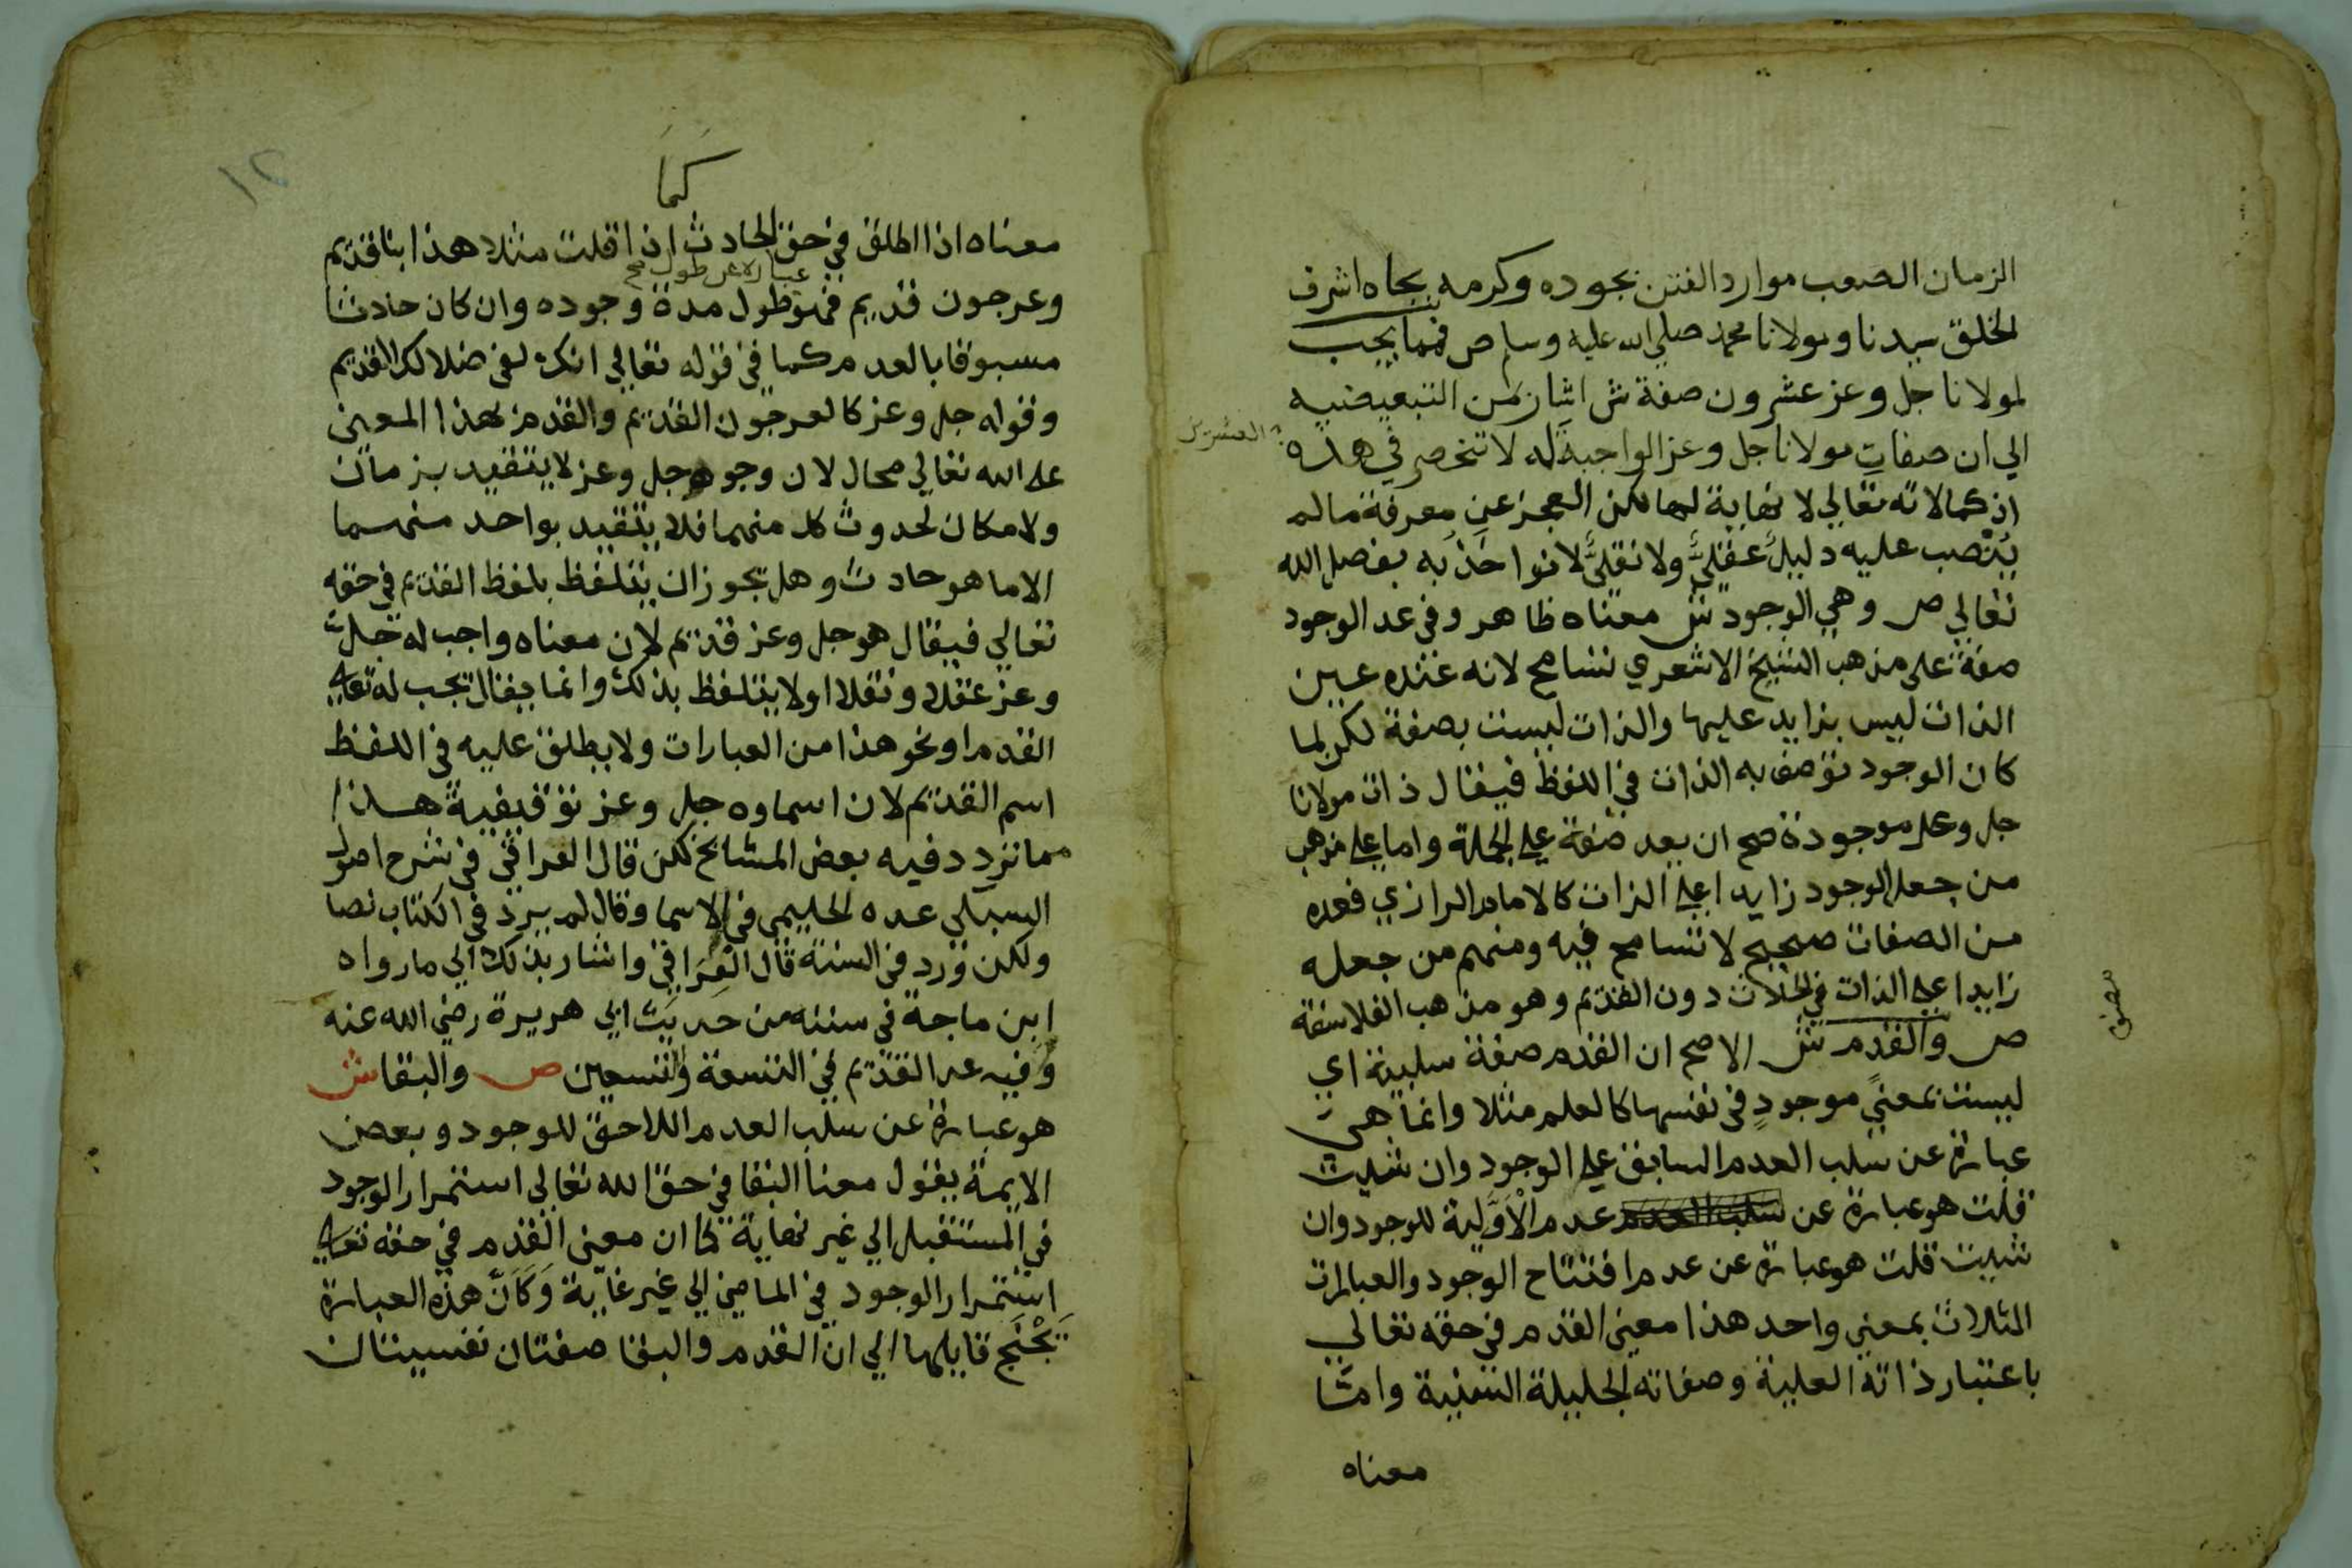 الزمان الصعب موارد الفتن بجوده وكرمه بجاه اشرف
الخلق سيدنا ومولانا محمد صلي الله عليه وسلم ص فمما يجب
لمولانا جل وعز عشرون صفة ش اشار بمن التبعيضيه
الي ان صفات مولانا جل وعز الواجبة له لا تنحصر في هذه
العشرين
اذ كمالاته تعالي لا نهاية لها لكن العجز عن معرفة ما لم
ينصب عليه دليل عقلي ولا نقلي لا نواخذ به بفضل الله
تعالي ص وهي الوجود ش معناه ظاهر وفي عد الوجود
صفة على مذهب الشيخ الاشعري تسامح لانه عنده عين
الذات ليس بزايد عليها والذات ليست بصفة لكن لما
كان الوجود توصف به الذات في اللفظ فيقال ذات مولانا
جل وعلا موجودة صح ان يعد صفة علي الجملة واما علي مذهب
من جعل الوجود زايدا علي الذات كالامام الرازي فعده
من الصفات صحيح لا تسامح فيه ومنهم من جعله
زايدا علي الذات في الحادث دون القديم وهو مذهب الفلاسفة
ص والقدم ش الاصح ان القدم صفة سلبية اي
ليست بمعني موجود في نفسها كالعلم مثلا وانما هي
عبارة عن سلب العدم السابق علي الوجود وان شيت
قلت هو عبارة عن سلب العدم عدم الاولية للوجود وان
شيت قلت هو عبارة عن عدم افتتاح الوجود والعبارات
الثلاث بمعني واحد هذا معني القدم في حقه تعالي
باعتبار ذاته العلية وصفاته الجليلة السنية واما
معناه
١٢
كما
معناه اذا اطلق في حق الحادث اذا قلت مثلا هذا بنا قديم
عبارة عن طول صح
وعرجون قديم فهو طول مدة وجوده وان كان حادثا
مسبوقا بالعدم كما في قوله تعالي انك لفي ضلالك القديم
وقوله جل وعز كالعرجون القديم والقدم بهذا المعني
علي الله تعالي محال لان وجوده جل وعز لا يتقيد بزمان
ولا مكان لحدوث كل منهما فلا يتقيد بواحد منهما
الا ما هو حادث وهل يجوز ان يتلفظ بلفظ القديم في حقه
تعالي فيقال هو جل وعز قديم لان معناه واجب له جل
وعز عقلا ونقلا او لا يتلفظ بذلك وانما يقال يجب له تعالي
القدم او نحو هذا من العبارات ولا يطلق عليه في اللفظ
اسم القديم لان اسماوه جل وعز توقيفية هذا
مما تردد فيه بعض المشايخ لكن قال العراقي في شرح اصول
السبكي عده الحليمي في الاسما وقال لم يرد في الكتاب نصا
ولكن ورد في السنة قال العراقي واشار بذلك الي ما رواه
ابن ماجة في سننه من حديث ابي هريرة رضي الله عنه
وفيه عد القديم في التسعة والتسعين ص والبقا ش
هو عبارة عن سلب العدم اللاحق للوجود وبعض
الايمة يقول معنا البقا في حق الله تعالي استمرار الوجود
في المستقبل الي غير نهاية كما ان معني القدم في حقه تعالي
استمرار الوجود في الماضي الي غير غاية وكان هذه العبارة
تجنح قايلها الي ان القدم والبقا صفتان نفسيتان